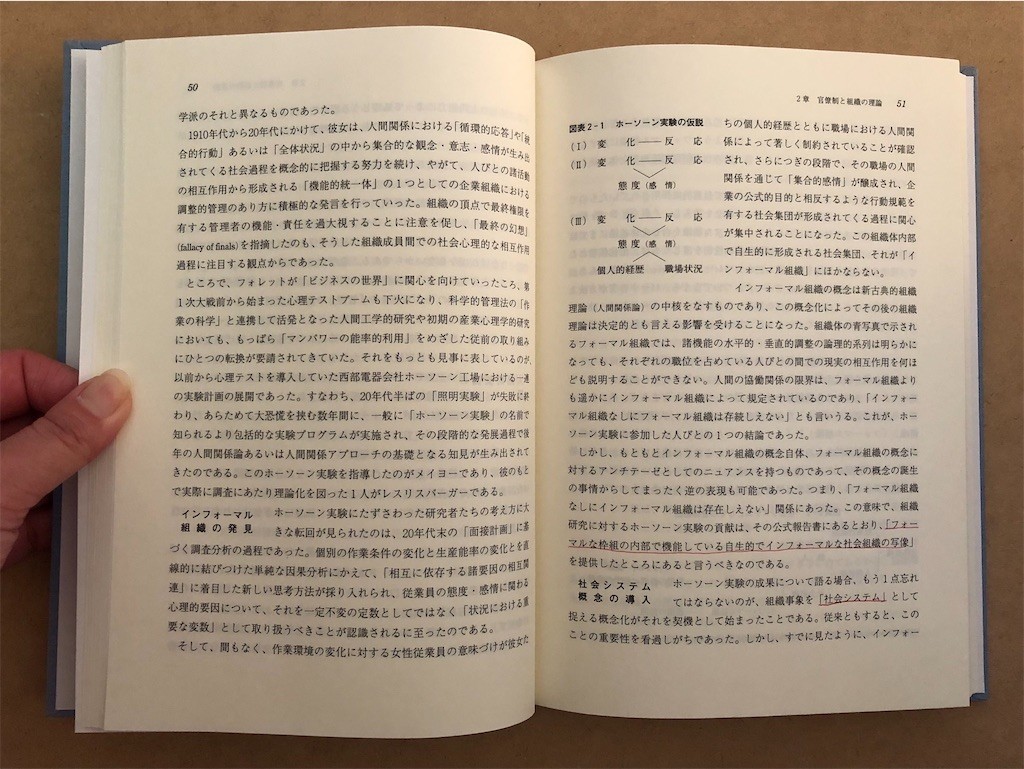 50
学派のそれと異なるものであった。
1910年代から20年代にかけて、彼女は、人間関係における「循環的応答」や「統
合的行動」あるいは「全体状況」の中から集合的な観念・意志・感情が生み出
されてくる社会過程を概念的に把握する努力を続け、やがて、人びとの諸活動
の相互作用から形成される「機能的統一体」の1つとしての企業組織における
調整的管理のあり方に積極的な発言を行っていった。組織の頂点で最終権限を
有する管理者の機能・責任を過大視することに注意を促し、「最終の幻想」
(fallacy of finals) を指摘したのも、そうした組織成員間での社会心理的な相互作用
過程に注目する観点からであった。
ところで、フォレットが「ビジネスの世界」に関心を向けていったころ、第
1次大戦前から始まった心理テストブームも下火になり、科学的管理法の「作
業の科学」と連携して活発となった人間工学的研究や初期の産業心理学的研究
においても、もっぱら「マンパワーの能率的利用」をめざした従前の取り組み
にひとつの転換が要請されてきていた。それをもっとも見事に表しているのが、
以前から心理テストを導入していた西部電器会社ホーソーン工場における一連
の実験計画の展開であった。すなわち、20年代半ばの「照明実験」が失敗に終
わり、あらためて大恐慌を挟む数年間に、一般に「ホーソーン実験」の名前で
知られるより包括的な実験プログラムが実施され、その段階的な発展過程で後
年の人間関係論あるいは人間関係アプローチの基礎となる知見が生み出されて
きたのである。このホーソーン実験を指導したのがメイヨーであり、彼のもと
で実際に調査にあたり理論化を図った1人がレスリスバーガーである。
インフォーマル
組織の発見
ホーソーン実験にたずさわった研究者たちの考え方に大
きな転回が見られたのは、20年代末の「面接計画」に基
づく調査分析の過程であった。個別の作業条件の変化と生産能率の変化とを直
線的に結びつけた単純な因果分析にかえて、「相互に依存する諸要因の相互関
連」に着目した新しい思考方法が採り入れられ、従業員の態度・感情に関わる
心理的要因について、それを一定不変の定数としてではなく「状況における重
要な変数」として取り扱うべきことが認識されるに至ったのである。
そして、間もなく、作業環境の変化に対する女性従業員の意味づけが彼女た
2章 官僚制と組織の理論 51
図表2-1 ホーソーン実験の仮説
(Ⅰ) 変 化――反 応
(Ⅱ) 変 化――反 応
態度(感 情)
(Ⅲ) 変 化――反 応
態度(感 情)
個人的経歴 職場状況
ちの個人的経歴とともに職場における人間関
係によって著しく制約されていることが確認
され、さらにつぎの段階で、その職場の人間
関係を通じて「集合的感情」が醸成され、企
業の公式的目的と相反するような行動規範を
有する社会集団が形成されてくる過程に関心
が集中されることになった。この組織体内部
で自生的に形成される社会集団、それが「イ
ンフォーマル組織」にほかならない。
インフォーマル組織の概念は新古典的組織
理論(人間関係論)の中核をなすものであり、この概念化によってその後の組織
理論は決定的とも言える影響を受けることになった。組織体の青写真で示され
るフォーマル組織では、諸機能の水平的・垂直的調整の論理的系列は明らかに
なっても、それぞれの職位を占めている人びとの間での現実の相互作用を何ほ
ども説明することができない。人間の協働関係の限界は、フォーマル組織より
も遥かにインフォーマル組織によって規定されているのであり、「インフォー
マル組織なしにフォーマル組織は存続しえない」とも言いうる。これが、ホー
ソーン実験に参加した人びとの1つの結論であった。
しかし、もともとインフォーマル組織の概念自体、フォーマル組織の概念に
対するアンチテーゼとしてのニュアンスを持つものであって、その概念の誕生
の事情からしてまったく逆の表現も可能であった。つまり、「フォーマル組織
なしにインフォーマル組織は存在しえない」関係にあった。この意味で、組織
研究に対するホーソーン実験の貢献は、その公式報告書にあるとおり、「フォー
マルな枠組の内部で機能している自生的でインフォーマルな社会組織の写像」
を提供したところにあると言うべきなのである。
社会システム
概念の導入
ホーソーン実験の成果について語る場合、もう1点忘れ
てはならないのが、組織事象を「社会システム」として
捉える概念化がそれを契機として始まったことである。従来ともすると、この
ことの重要性を看過しがちであった。しかし、すでに見たように、インフォー